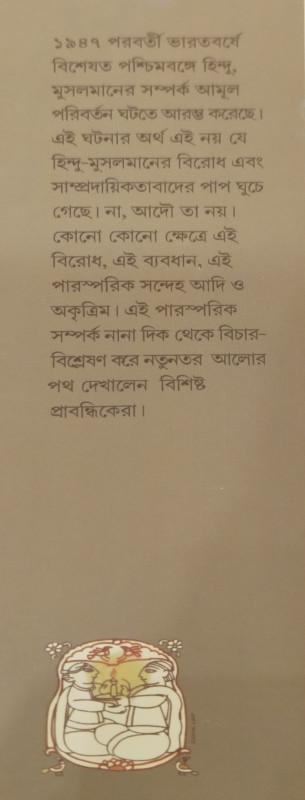 ১৯৪৭ পরবর্তী ভারতবর্ষে
বিশেষত পশ্চিমবঙ্গে হিন্দু,
মুসলমানের সম্পর্ক আমূল
পরিবর্তন ঘটতে আরম্ভ করেছে।
এই ঘটনার অর্থ এই নয় যে
হিন্দু-মুসলমানের বিরোধ এবং
সাম্প্রদায়িকতাবাদের পাপ ঘুচে
গেছে। না, আদৌ তা নয়।
কোনো কোনো ক্ষেত্রে এই
বিরোধ, এই ব্যবধান, এই
পারস্পরিক সন্দেহ আদি ও
অকৃত্রিম। এই পারস্পরিক
সম্পর্ক নানা দিক থেকে বিচার-
বিশ্লেষণ করে নতুনতর আলোর
পথ দেখালেন বিশিষ্ট
প্রাবন্ধিকেরা।